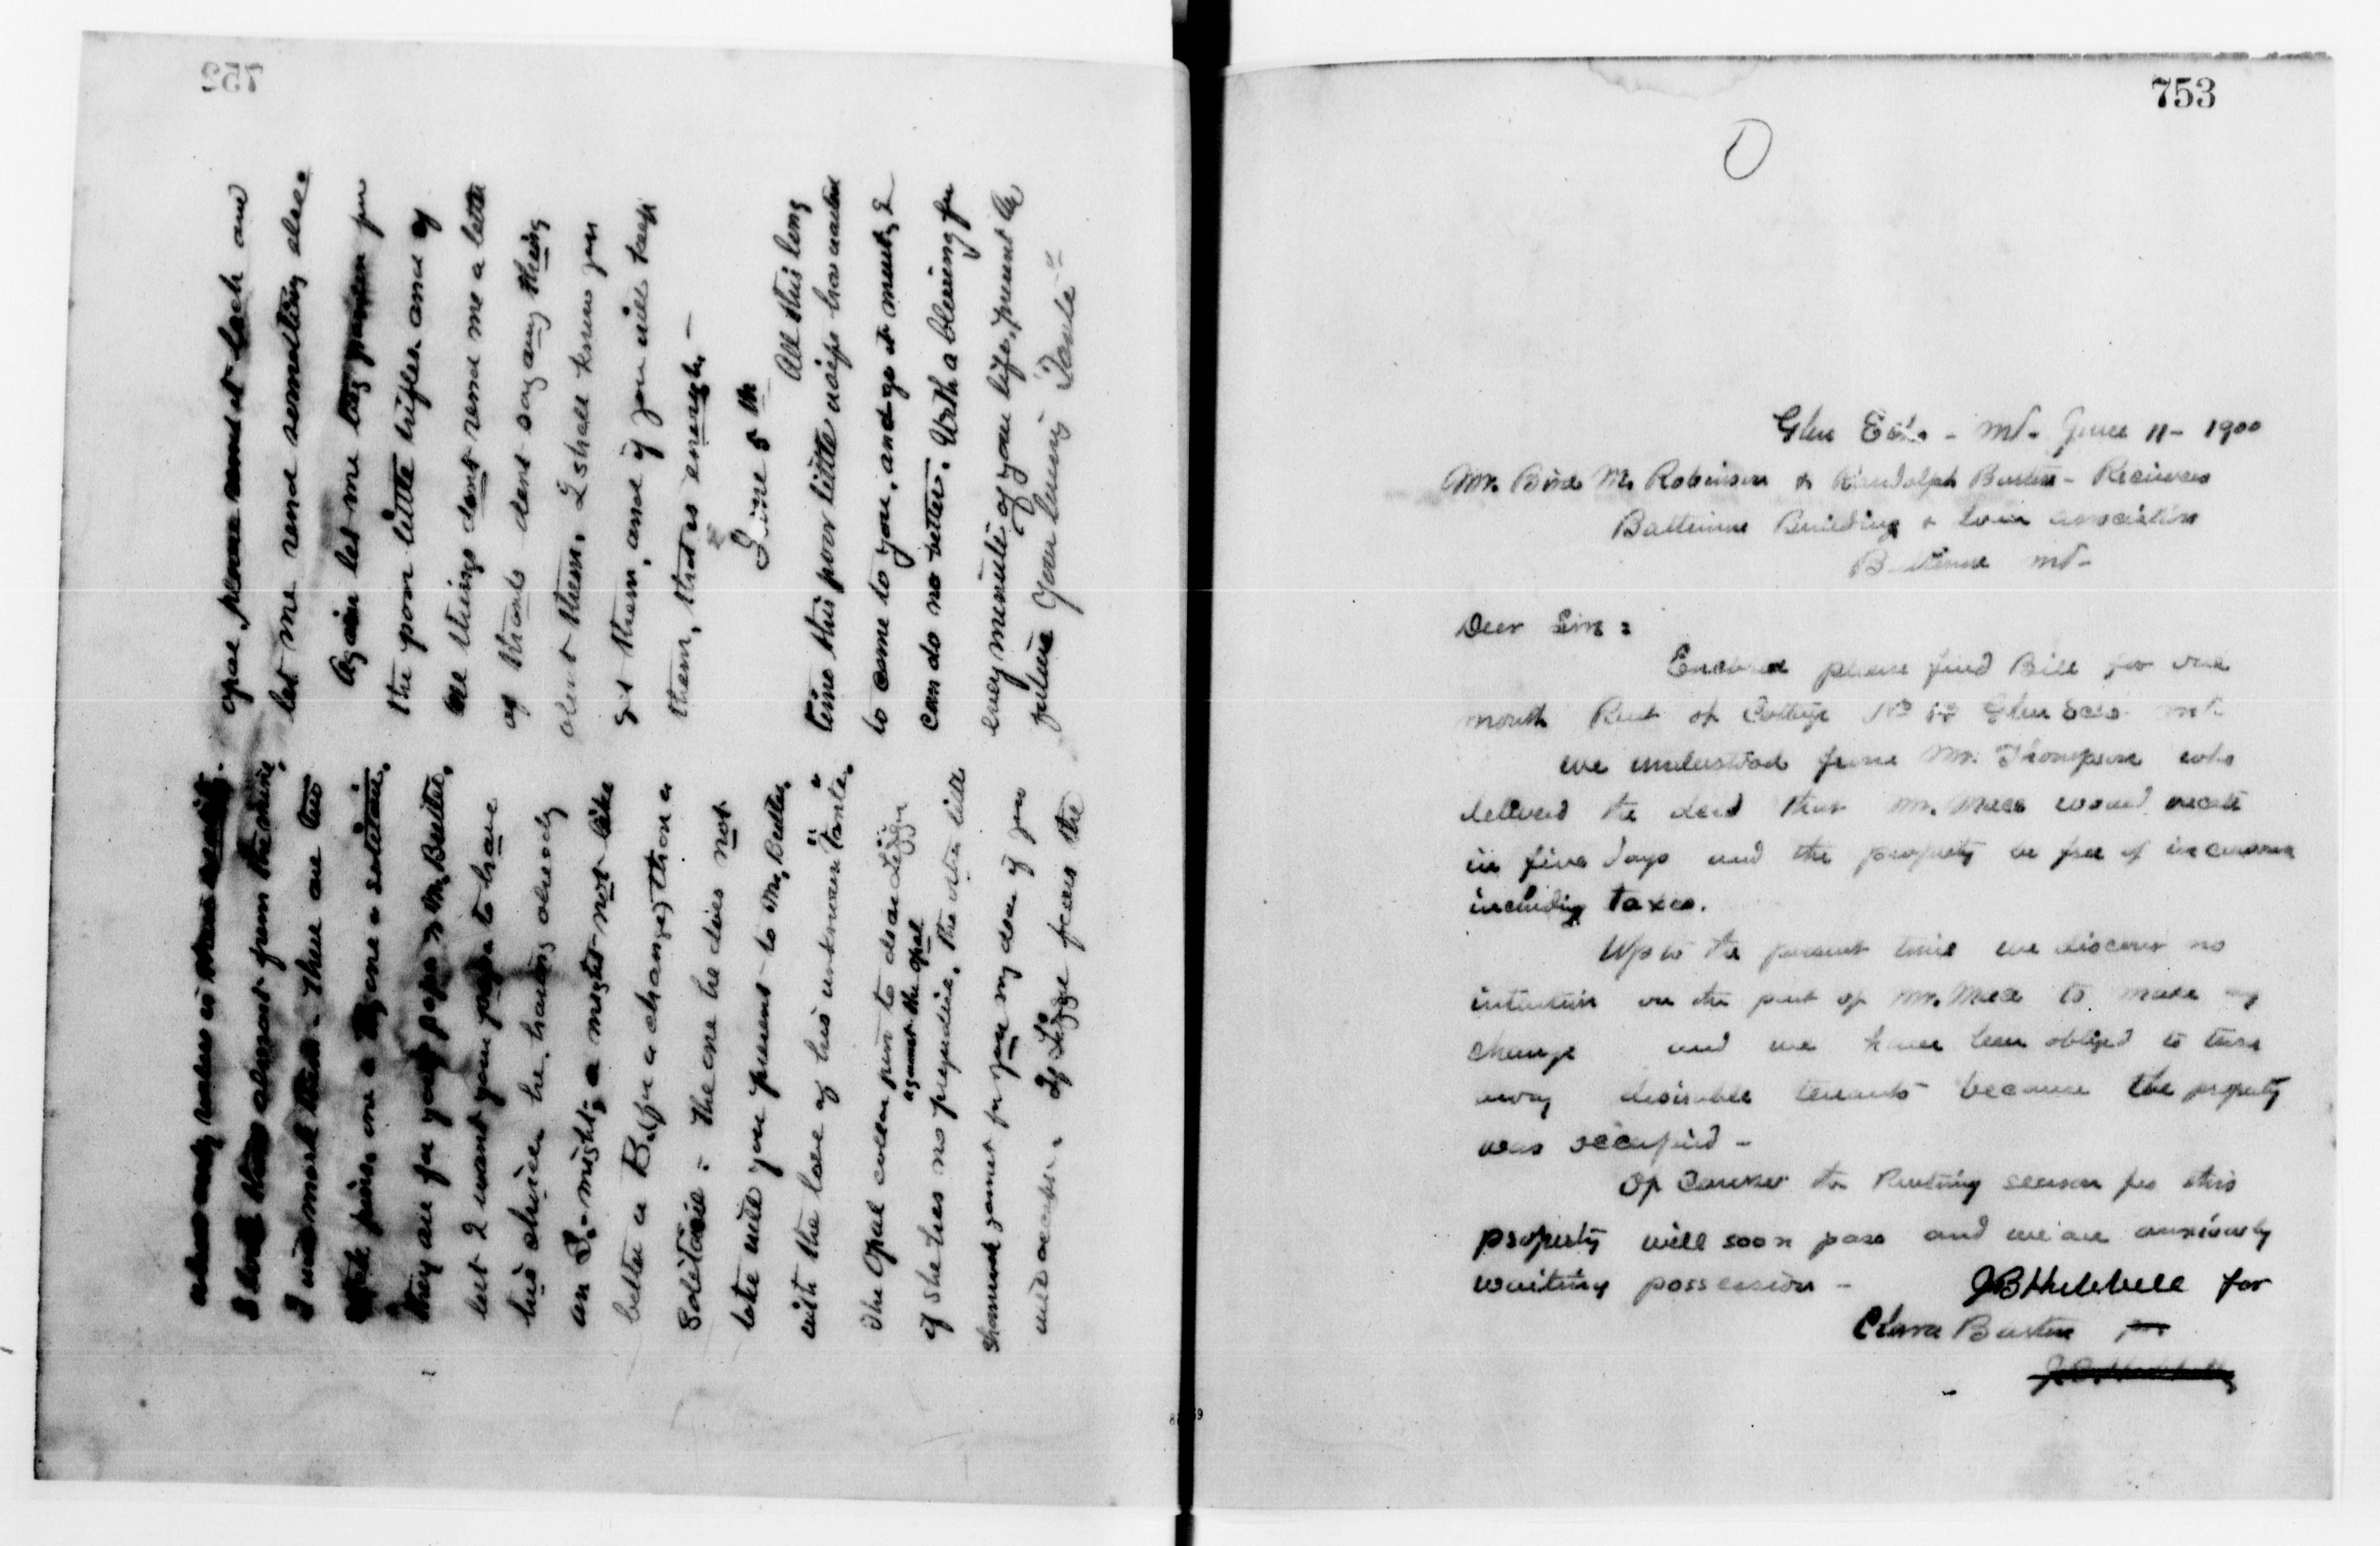 752
I almost from the mine,
there are two
pins, one a solitaire,
they are for your papa & Mr. Butler,
but I want your papa to have
his choice, he having already
an S. might, a might not like
better a B. (for a change) than a
Solitaire :- the one he does not
take will you present to Mr. Butler,
with the love of his unknown "Tante".
The Opal collar pin to dear "Lizzie"
against the opal
if she has no prejudice. The other little
garnet for you my dear if you
will accept. If Lizzie fears the
opal, please send it back and
let me send something else.
Again let me beg pardon for
the poor little trifles, and of
all things dont send me a letter
of thanks dont say any thing
about them, I shall know you
get them, and if you will keep
them, that is enough. -
June 5 th
All this long
time this poor little waifs has waited
to come to you, and go it must, I
can do no better. With a blessing for
every minute of your life, present &
future Your loving "Tante"
753
1
Glen Echo - Md - June 11 - 1900
Mr. Bird M. Robinson & Randolph Barton - Recievers
Baltimore Building & Loan association
Baltimore Md -
Dear Sirs :
Enclosed please find Bill for one
month Rent of Cottage No Glen Echo Md.
we understood from Mr. Thompson who
delivered the deed that Mr. would vacate
in five days and the property be free of
including taxes.
Up to the present time we discover no
intention on the part of Mr. to make any
change and we have been obliged to turn
away desirable tenants because the property
was occupied -
Of course the Renting season for this
property will soon pass and we are anxiously
waiting possession -
J B Hubbell for
Clara Barton